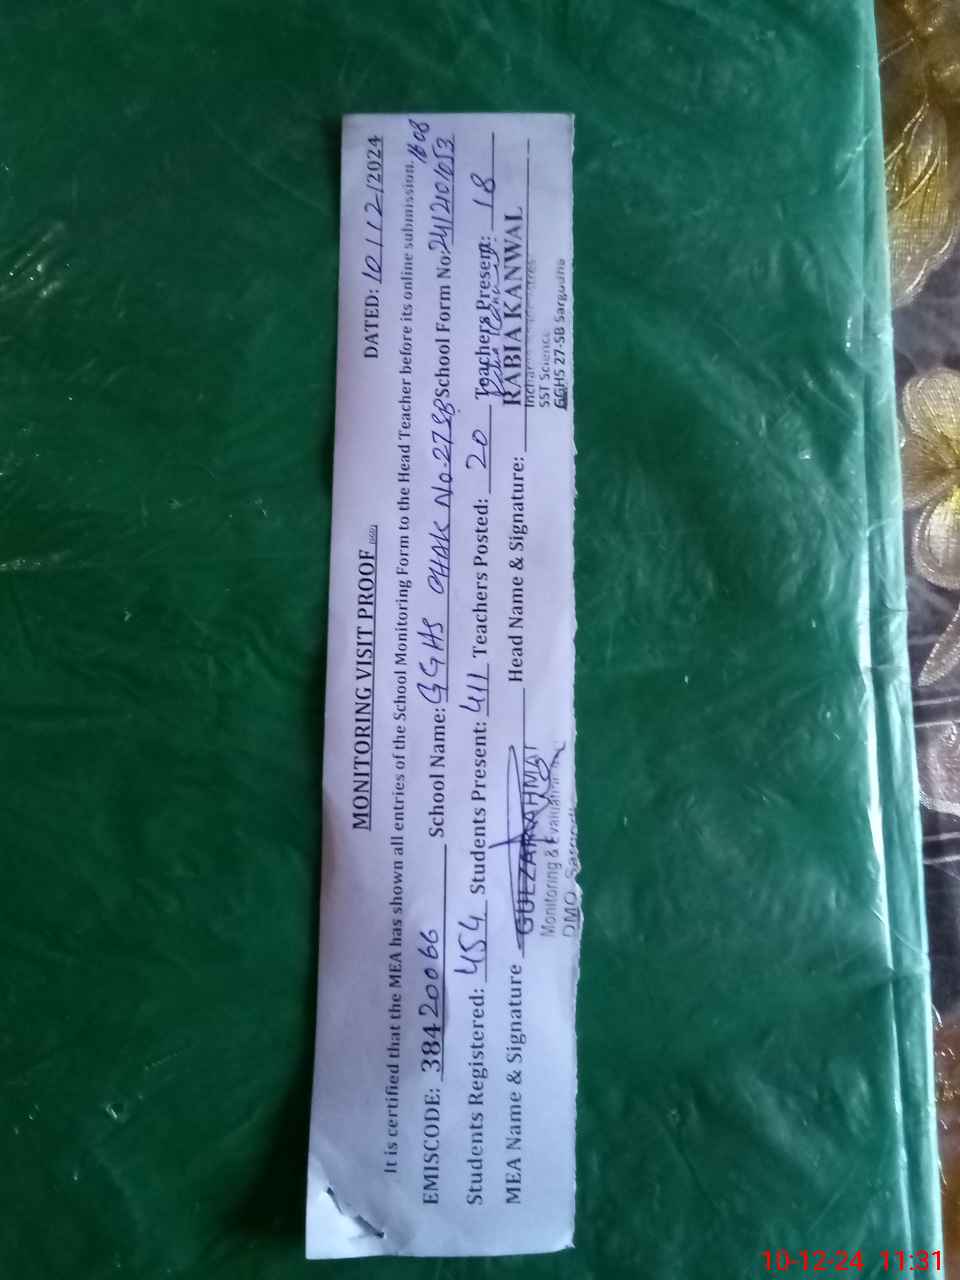 MONITORING VISIT PROOF
DATED: 10/12/2024
It is certified that the MEA has shown all entries of the School Monitoring Form to the Head Teacher before its online submission.
1608
EMISCODE: 38420066 School Name: GGHS CHAK No. 27SB School Form No:
Students Registered: 454 Students Present: 411 Teachers Posted: 20 Teachers Present: 18
MEA Name & Signature GULZAR AHMAD Head Name & Signature: RABIA KANWAL
Monitoring & Evaluation
DMO
SST Science
GGHS 27-SB Sargodha
10-12-24 11:31